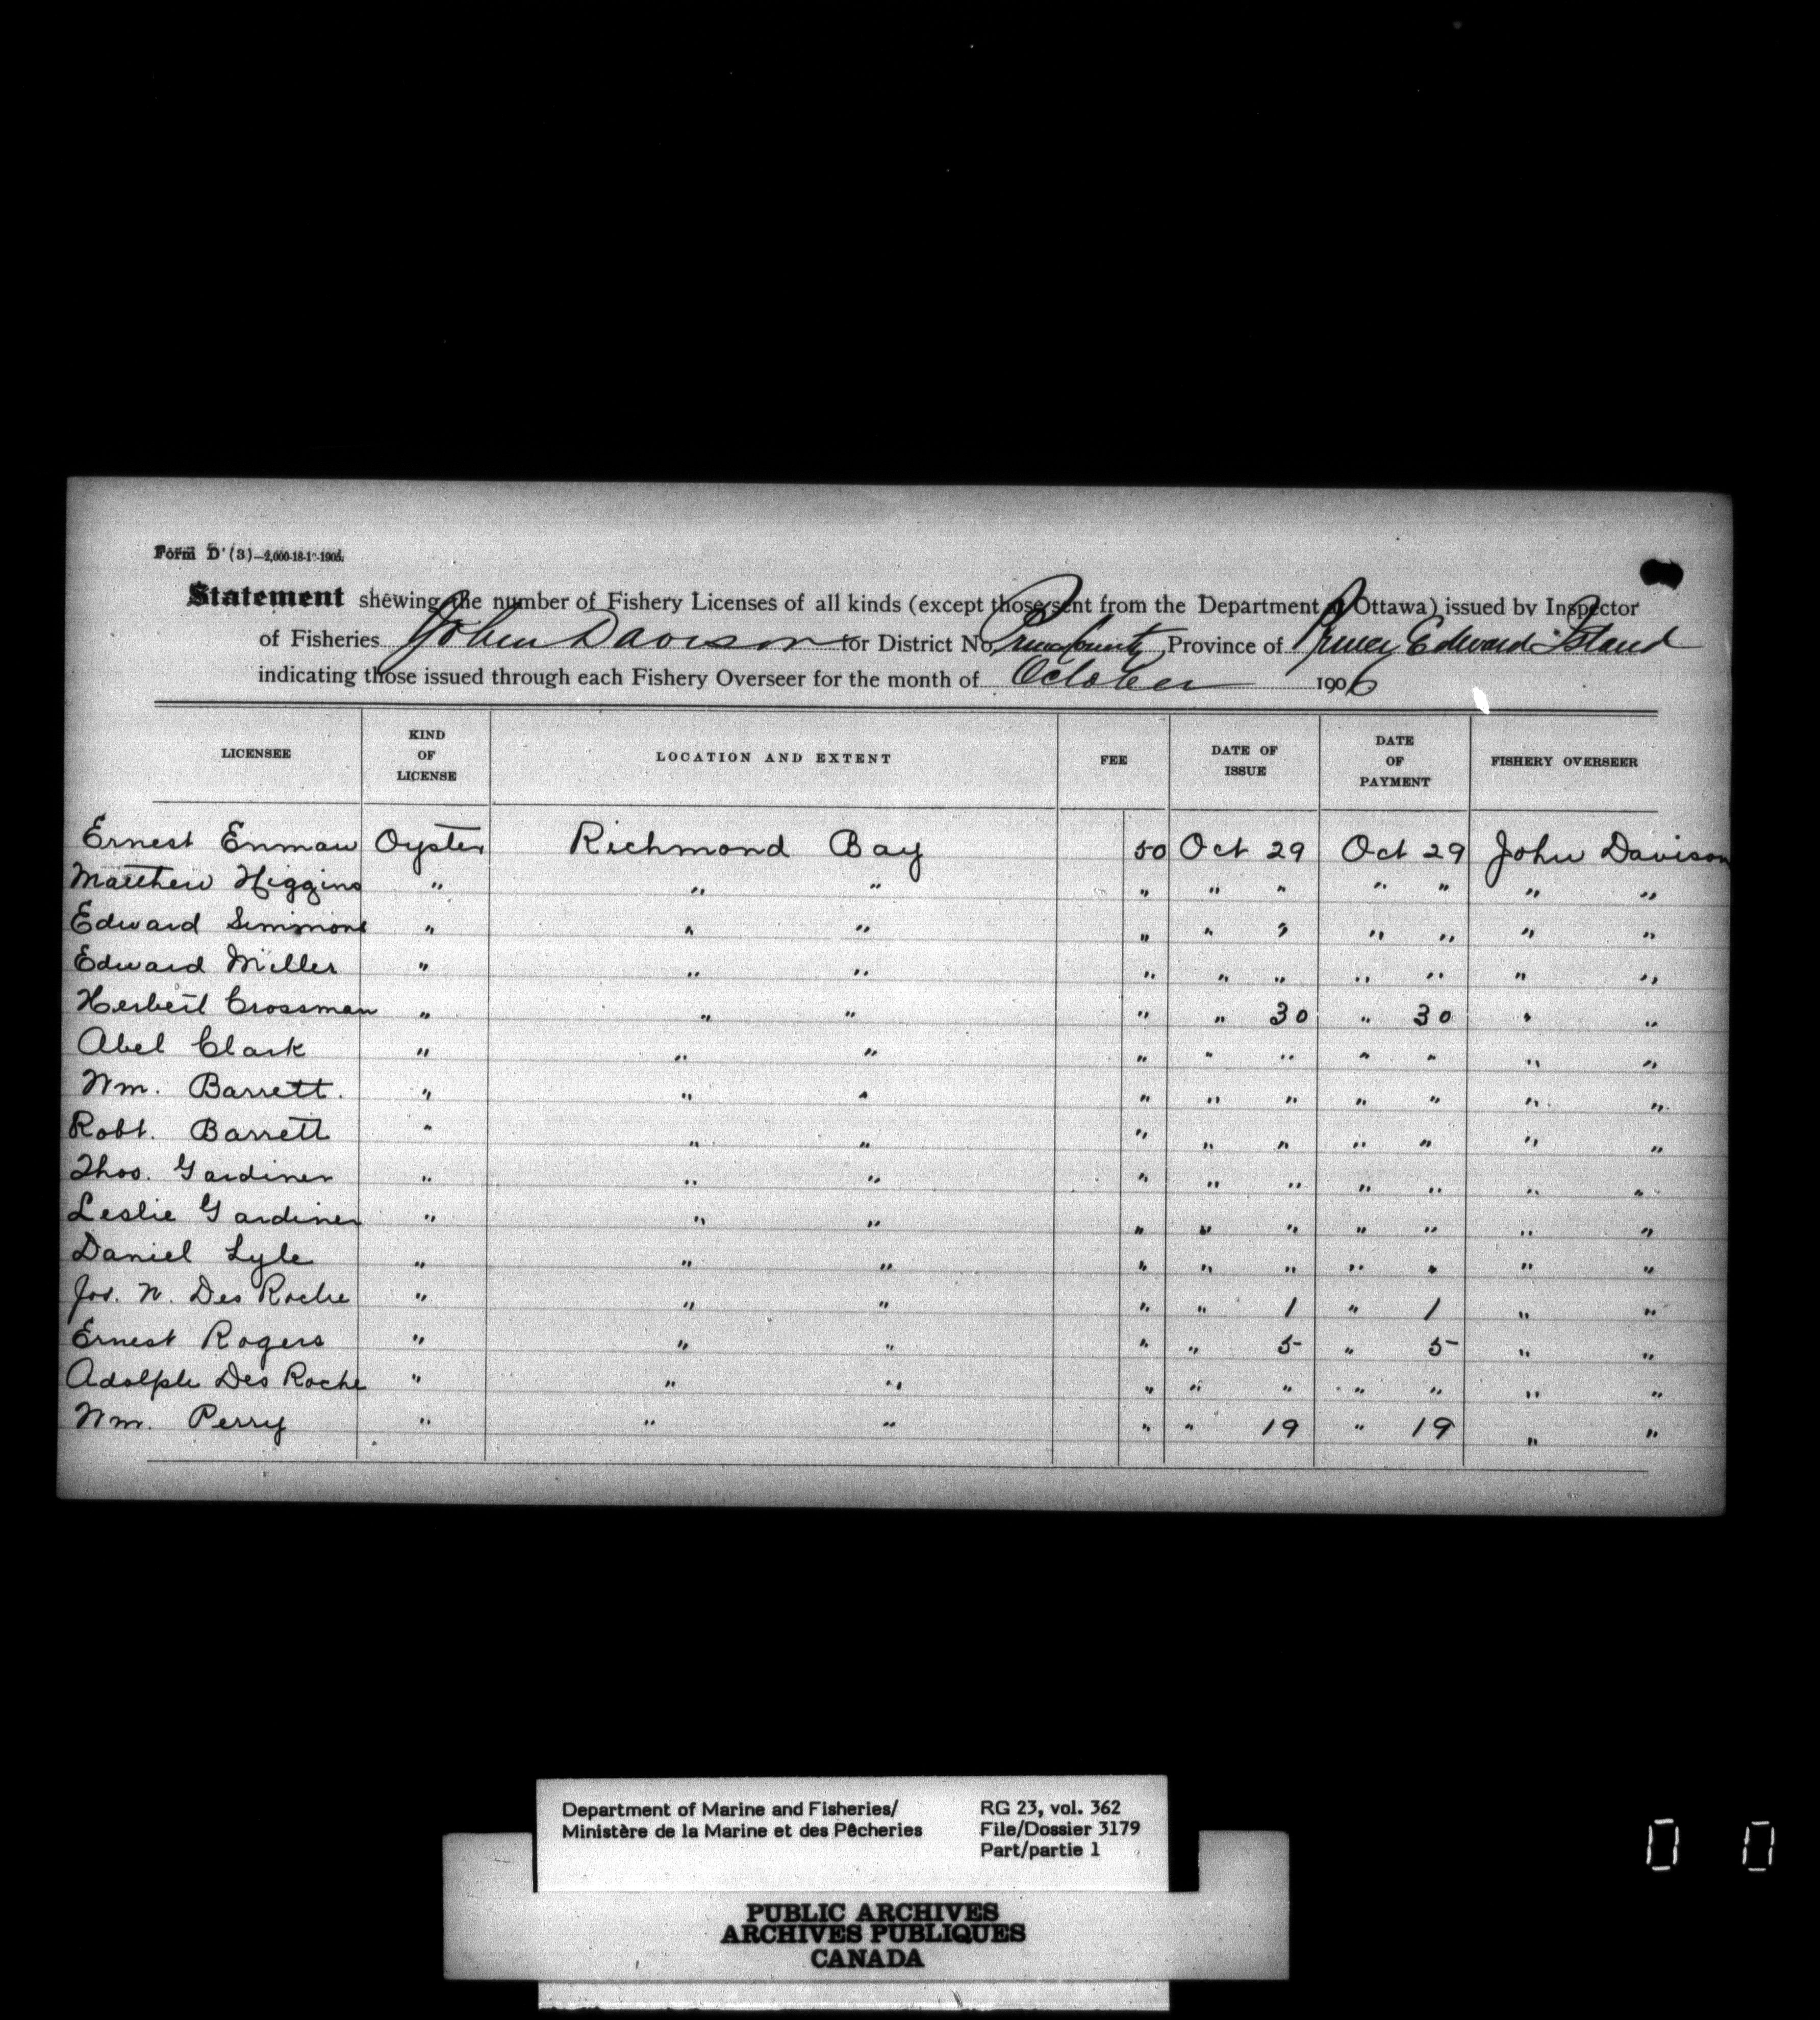 Form D (3)—2,000-18-1-1905.
Statement shewing the number of Fishery Licenses of all kinds (except those sent from the Department at Ottawa) issued by Inspector
of Fisheries John Davison for District No. Prince County Province of Prince Edward Island
indicating those issued through each Fishery Overseer for the month of October 1906
LICENSEE KIND OF LICENSE LOCATION AND EXTENT FEE DATE OF ISSUE DATE OF PAYMENT FISHERY OVERSEER
Ernest Enman Oyster Richmond Bay 50 Oct 29 Oct 29 John Davison
Matthew Higgins " " " " " " " " " "
Edward Simmons " " " " " " " " " "
Edward Miller " " " " " " " " " "
Herbert Crossman " " " " " 30 " 30 " "
Abel Clark " " " " " " " " " "
Wm. Barrett. " " " " " " " " " "
Robt. Barrett " " " " " " " " " "
Thos. Gardiner " " " " " " " " " "
Leslie Gardiner " " " " " " " " " "
Daniel Lyle " " " " " " " " " "
Jos. N. Des Roche " " " " " 1 " 1 " "
Ernest Rogers " " " " " 5 " 5 " "
Adolph Des Roche " " " " " " " " " "
Wm. Perry " " " " " 19 " 19 " "
Department of Marine and Fisheries/ RG 23, vol. 362
Ministère de la Marine et des Pêcheries File/Dossier 3179
Part/partie 1
PUBLIC ARCHIVES
ARCHIVES PUBLIQUES
CANADA
0 0